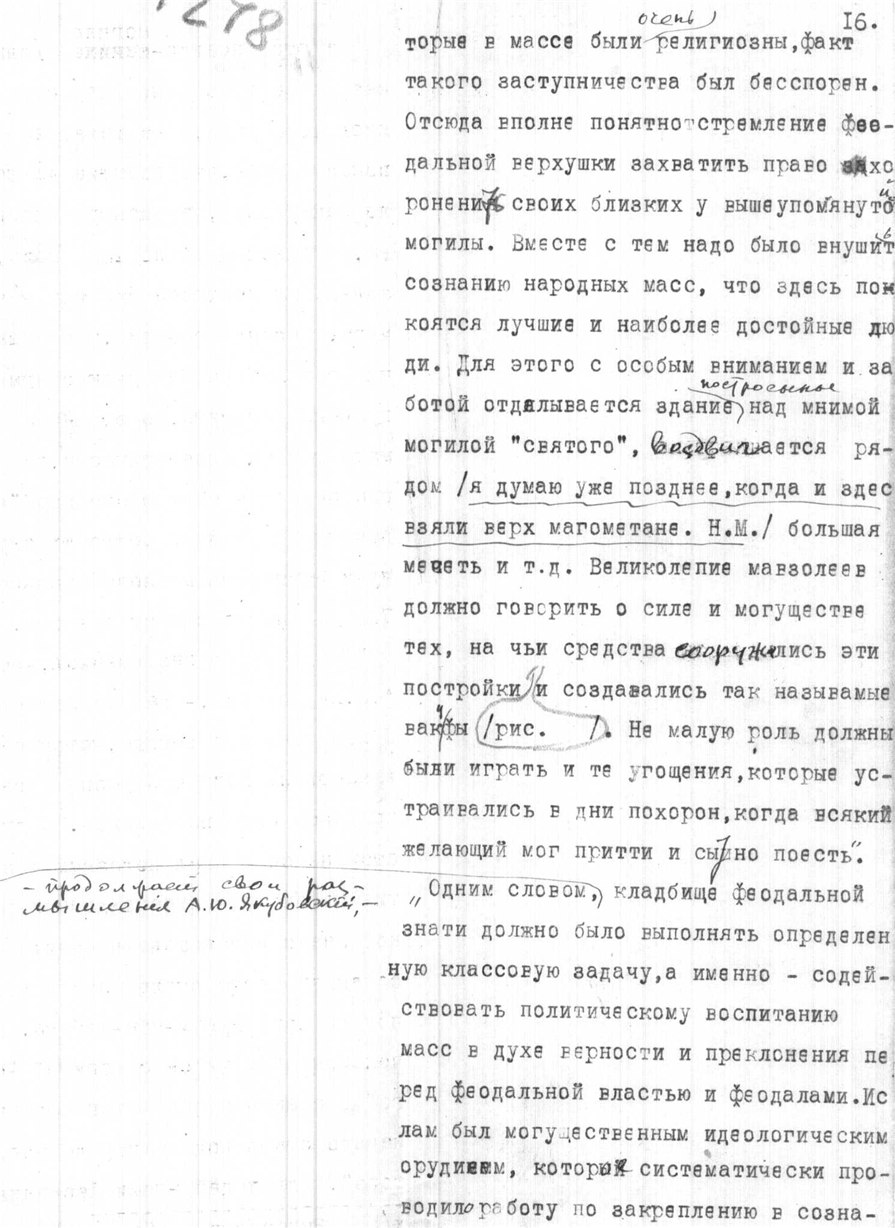 1278
16.
очень
торые в массе были религиозны,факт
такого заступничества был бесспорен.
Отсюда вполне понятно стремление фео-
дальной верхушки захватить право захо
ронения своих близких у вышеупомянутой
могилы. Вместе с тем надо было внушить
сознанию народных масс, что здесь по
коятся лучшие и наиболее достойные лю
ди. Для этого с особым вниманием и за
построенное
ботой отделывается здание над мнимой
могилой "святого", воздвигается ря-
дом /я думаю уже позднее,когда и здес
взяли верх магометане. Н.М./ большая
мечеть и т.д. Великолепие мавзолеев
должно говорить о силе и могуществе
тех, на чьи средства сооружались эти
постройки и создавались так называмые
вакуфы /рис. /. Не малую роль должны
были играть и те угощения,которые ус-
траивались в дни похорон,когда всякий
желающий мог притти и сытно поесть".
- продолжает свои раз-
мышления А.Ю. Якубовский, -
„Одним словом, кладбище феодальной
знати должно было выполнять определен
ную классовую задачу,а именно - содей-
ствовать политическому воспитанию
масс в духе верности и преклонения пе
ред феодальной властью и феодалами.Ис
лам был могущественным идеологическим
орудием, который систематически про-
водил работу по закреплению в созна-